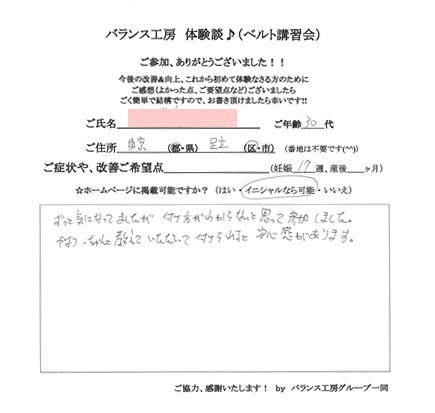 バランス工房 体験談♪(ベルト講習会)
ご参加、ありがとうございました!!
今後の改善&向上、これから初めて体験なさる方のために
ご感想(よかった点、ご要望点など)ございましたら
ごく簡単で結構ですので、お書き頂けましたら幸いです!!
ご氏名 ご年齢 30 代
ご住所 東京 (都・県) 足立 (区・市) (番地は不要です(^^))
ご症状や、改善ご希望点 (妊娠 17 週、産後 ヶ月)
☆ホームページに掲載可能ですか? (はい・イニシャルなら可能・いいえ)
ずっと気になってましたが 付け方がわからないと思って参加しました。
やはり、ちゃんと教えていただいて付けられると安心感があります。
ご協力、感謝いたします! by バランス工房グループ一同